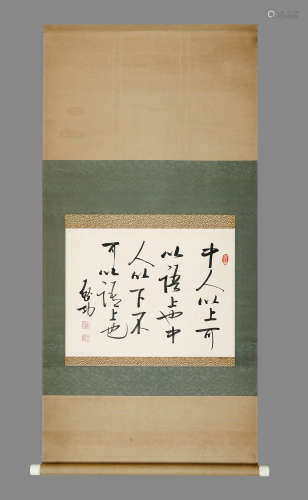 中人以上可
以语上也中
人以下不
可以语上也
启功